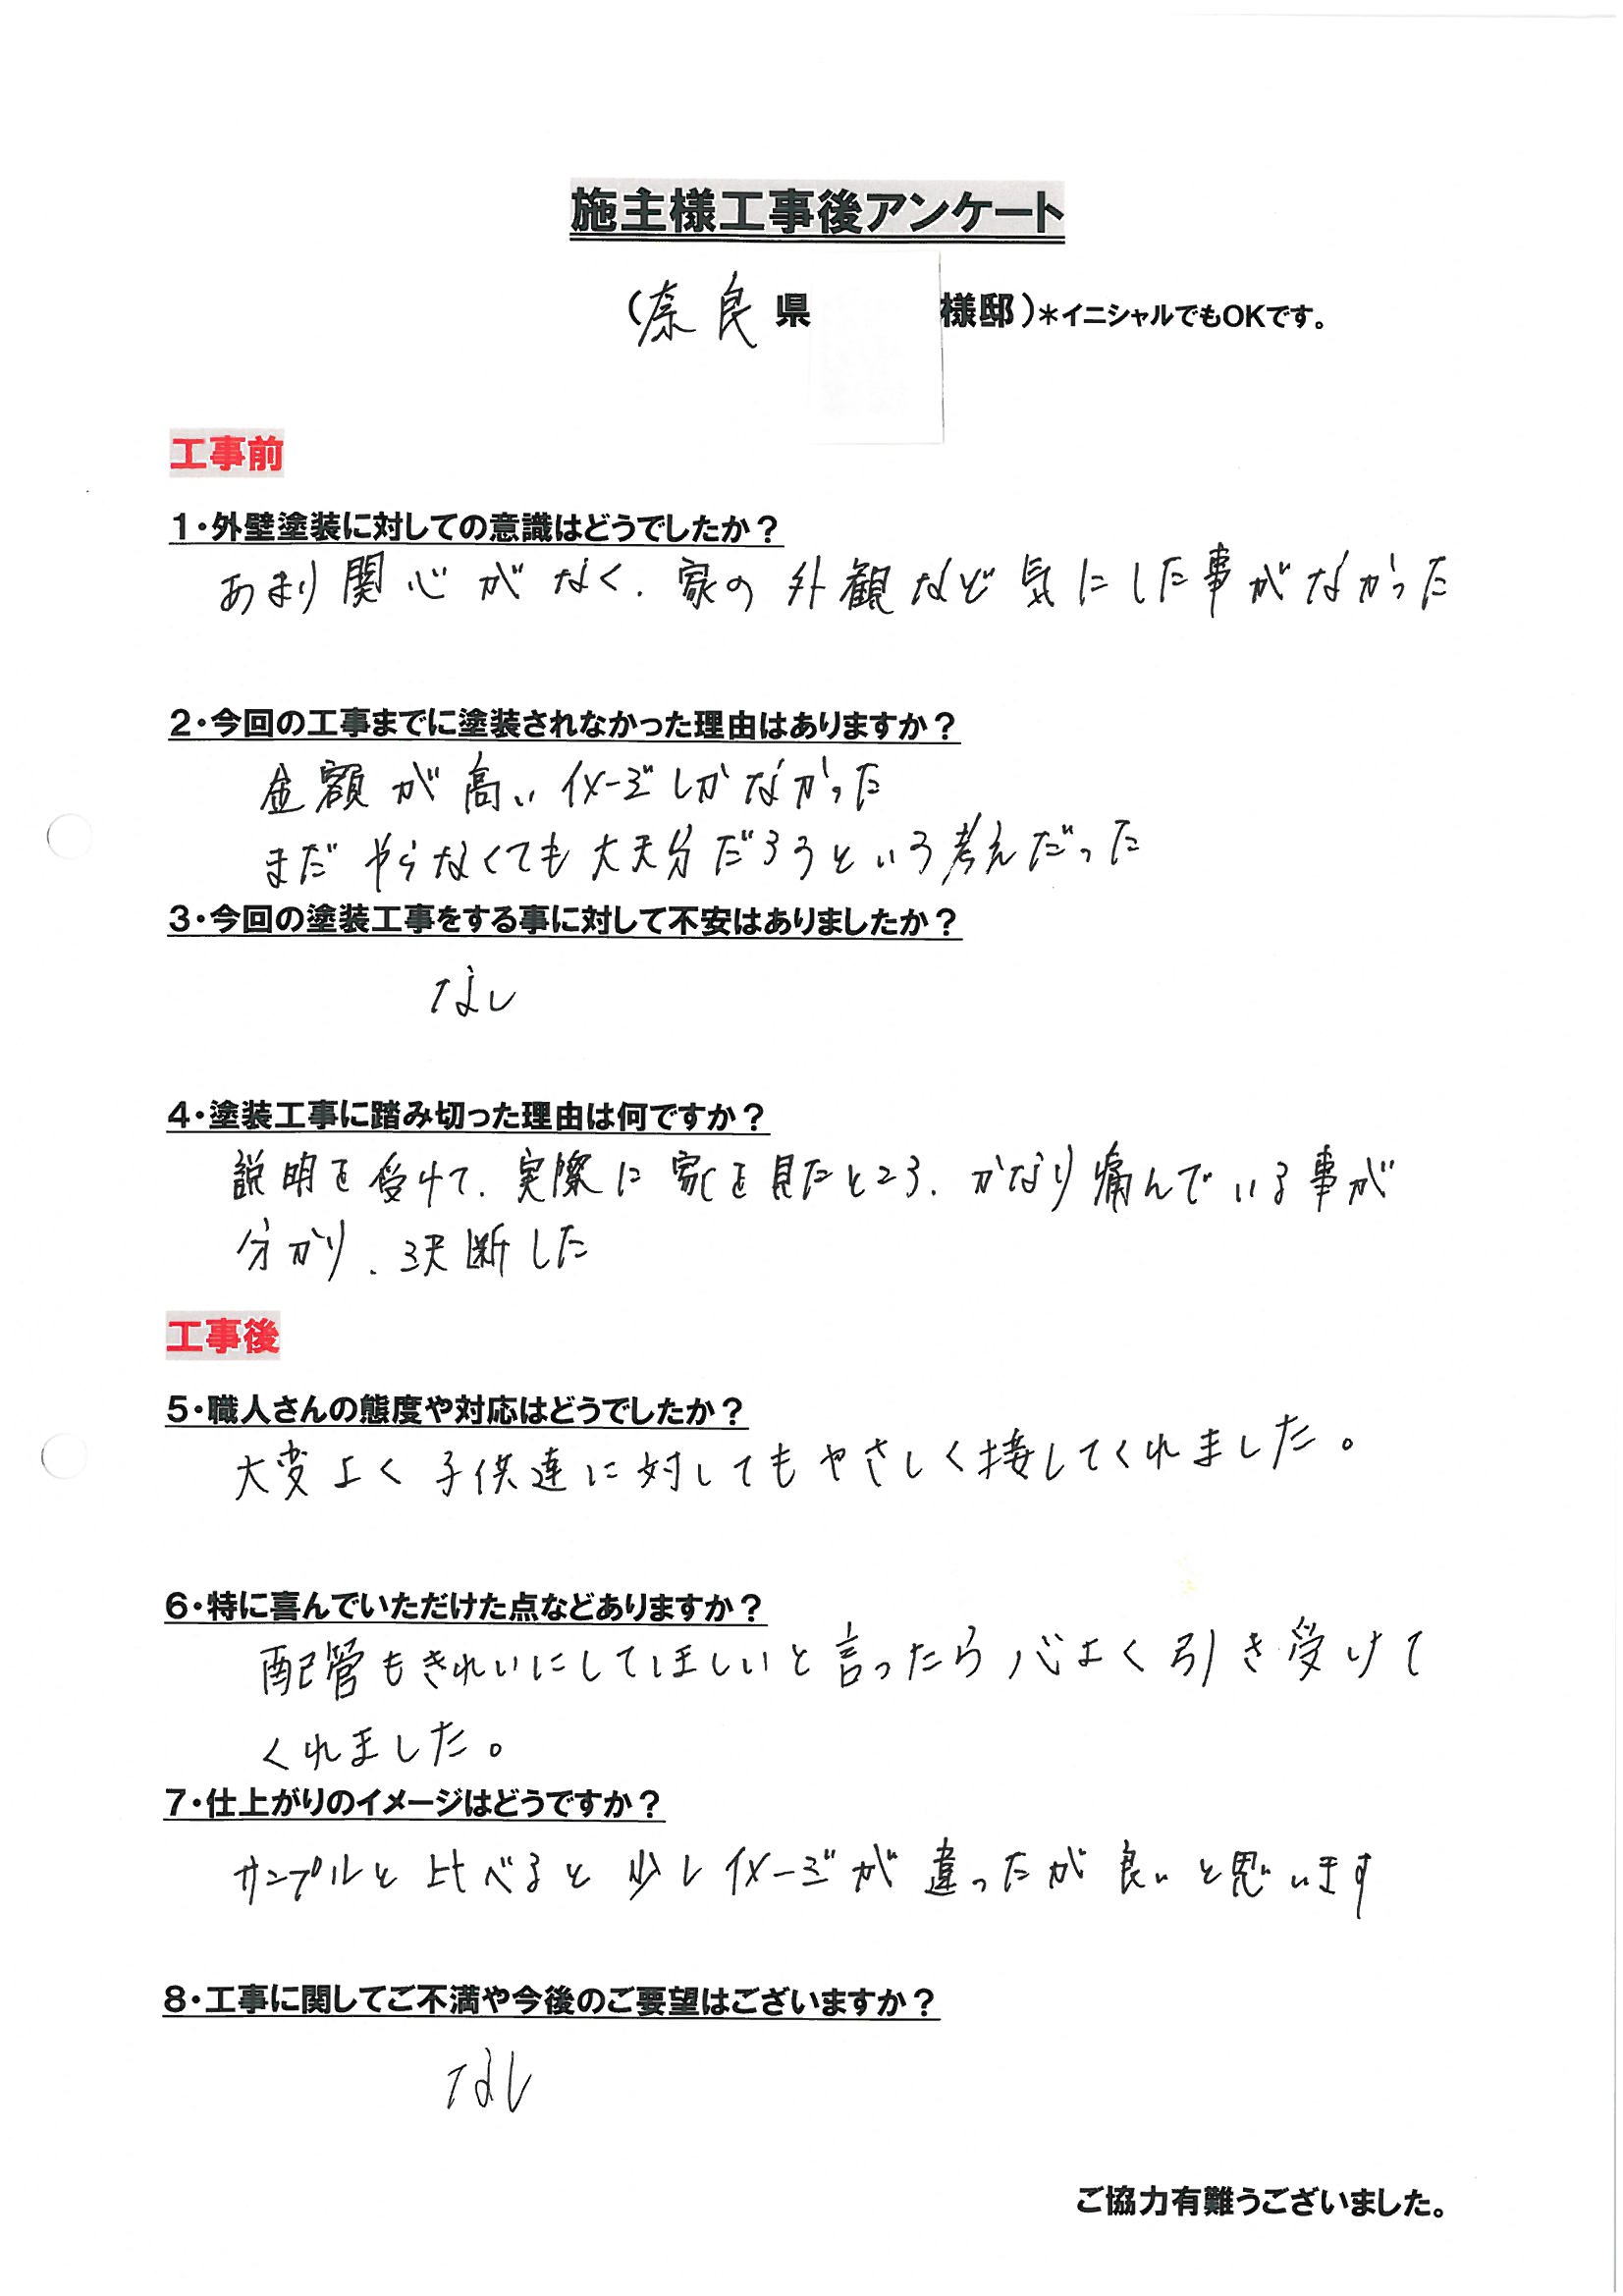 施主様工事後アンケート
(奈良県 様邸)*イニシャルでもOKです。
工事前
1・外壁塗装に対しての意識はどうでしたか?
あまり関心がなく、家の外観など気にした事がなかった
2・今回の工事までに塗装されなかった理由はありますか?
金額が高いイメージしかなかった
まだやらなくても大丈分だろうという考えだった
3・今回の塗装工事をする事に対して不安はありましたか?
なし
4・塗装工事に踏み切った理由は何ですか?
説明を受けて、実際に家を見たところ、かなり痛んでいる事が
分かり、決断した
工事後
5・職人さんの態度や対応はどうでしたか?
大変よく子供達に対してもやさしく接してくれました。
6・特に喜んでいただけた点などありますか?
配管もきれいにしてほしいと言ったら心よく引き受けて
くれました。
7・仕上がりのイメージはどうですか?
サンプルと比べると少しイメージが違ったが良いと思います
8・工事に関してご不満や今後のご要望はございますか?
なし
ご協力有難うございました。